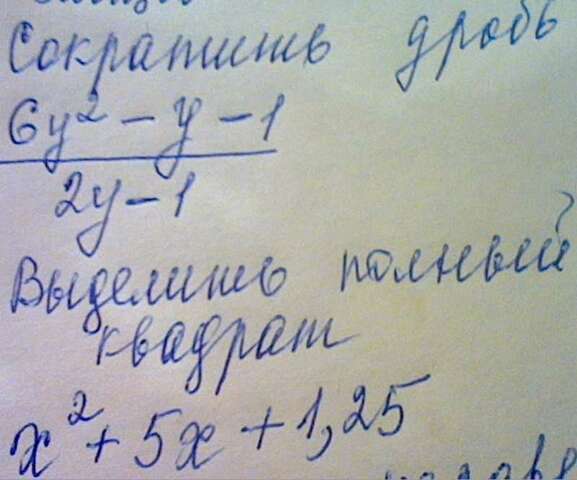 Сократить дробь
6y² - y - 1
2y - 1
Выделить полный
квадрат
x² + 5x + 1,25